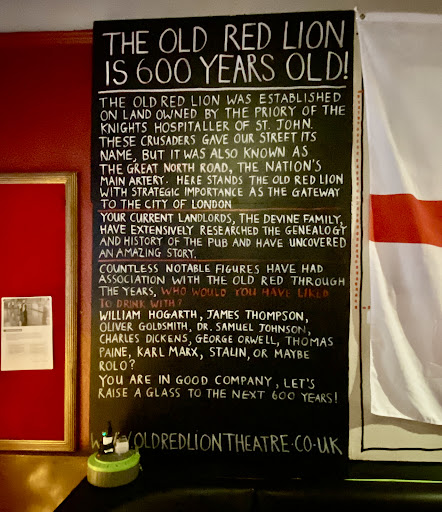 THE OLD RED LION
IS 600 YEARS OLD!
THE OLD RED LION WAS ESTABLISHED
ON LAND OWNED BY THE PRIORY OF THE
KNIGHTS HOSPITALLER OF ST. JOHN.
THESE CRUSADERS GAVE OUR STREET ITS
NAME, BUT IT WAS ALSO KNOWN AS
THE GREAT NORTH ROAD, THE NATION'S
MAIN ARTERY. HERE STANDS THE OLD RED LION
WITH STRATEGIC IMPORTANCE AS THE GATEWAY
TO THE CITY OF LONDON
YOUR CURRENT LANDLORDS, THE DEVINE FAMILY,
HAVE EXTENSIVELY RESEARCHED THE GENEALOGY
AND HISTORY OF THE PUB AND HAVE UNCOVERED
AN AMAZING STORY.
COUNTLESS NOTABLE FIGURES HAVE HAD
ASSOCIATION WITH THE OLD RED THROUGH
THE YEARS. WHO WOULD YOU HAVE LIKED
TO DRINK WITH?
WILLIAM HOGARTH, JAMES THOMPSON,
OLIVER GOLDSMITH, DR. SAMUEL JOHNSON,
CHARLES DICKENS, GEORGE ORWELL, THOMAS
PAINE, KARL MARX, STALIN, OR MAYBE
ROLO?
YOU ARE IN GOOD COMPANY, LET'S
RAISE A GLASS TO THE NEXT 600 YEARS!
OLDREDLIONTHEATRE.CO.UK